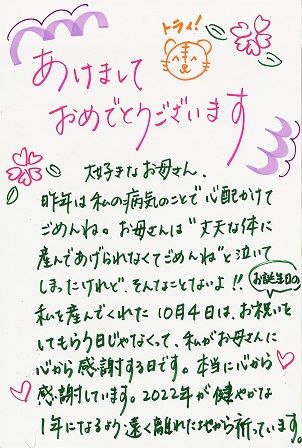 トライ!
あけまして
おめでとうございます
大好きなお母さん、
昨年は私の病気のことで心配かけて
ごめんね。お母さんは“丈夫な体に
産んであげられなくてごめんね”と泣いて
しまったけれど、そんなことないよ!!
お誕生日の
私を産んでくれた10月4日は、お祝いを
してもらう日じゃなくって、私がお母さんに
心から感謝する日です。本当に心から
感謝しています。2022年が健やかな
1年になるよう、遠く離れた地から祈っています。